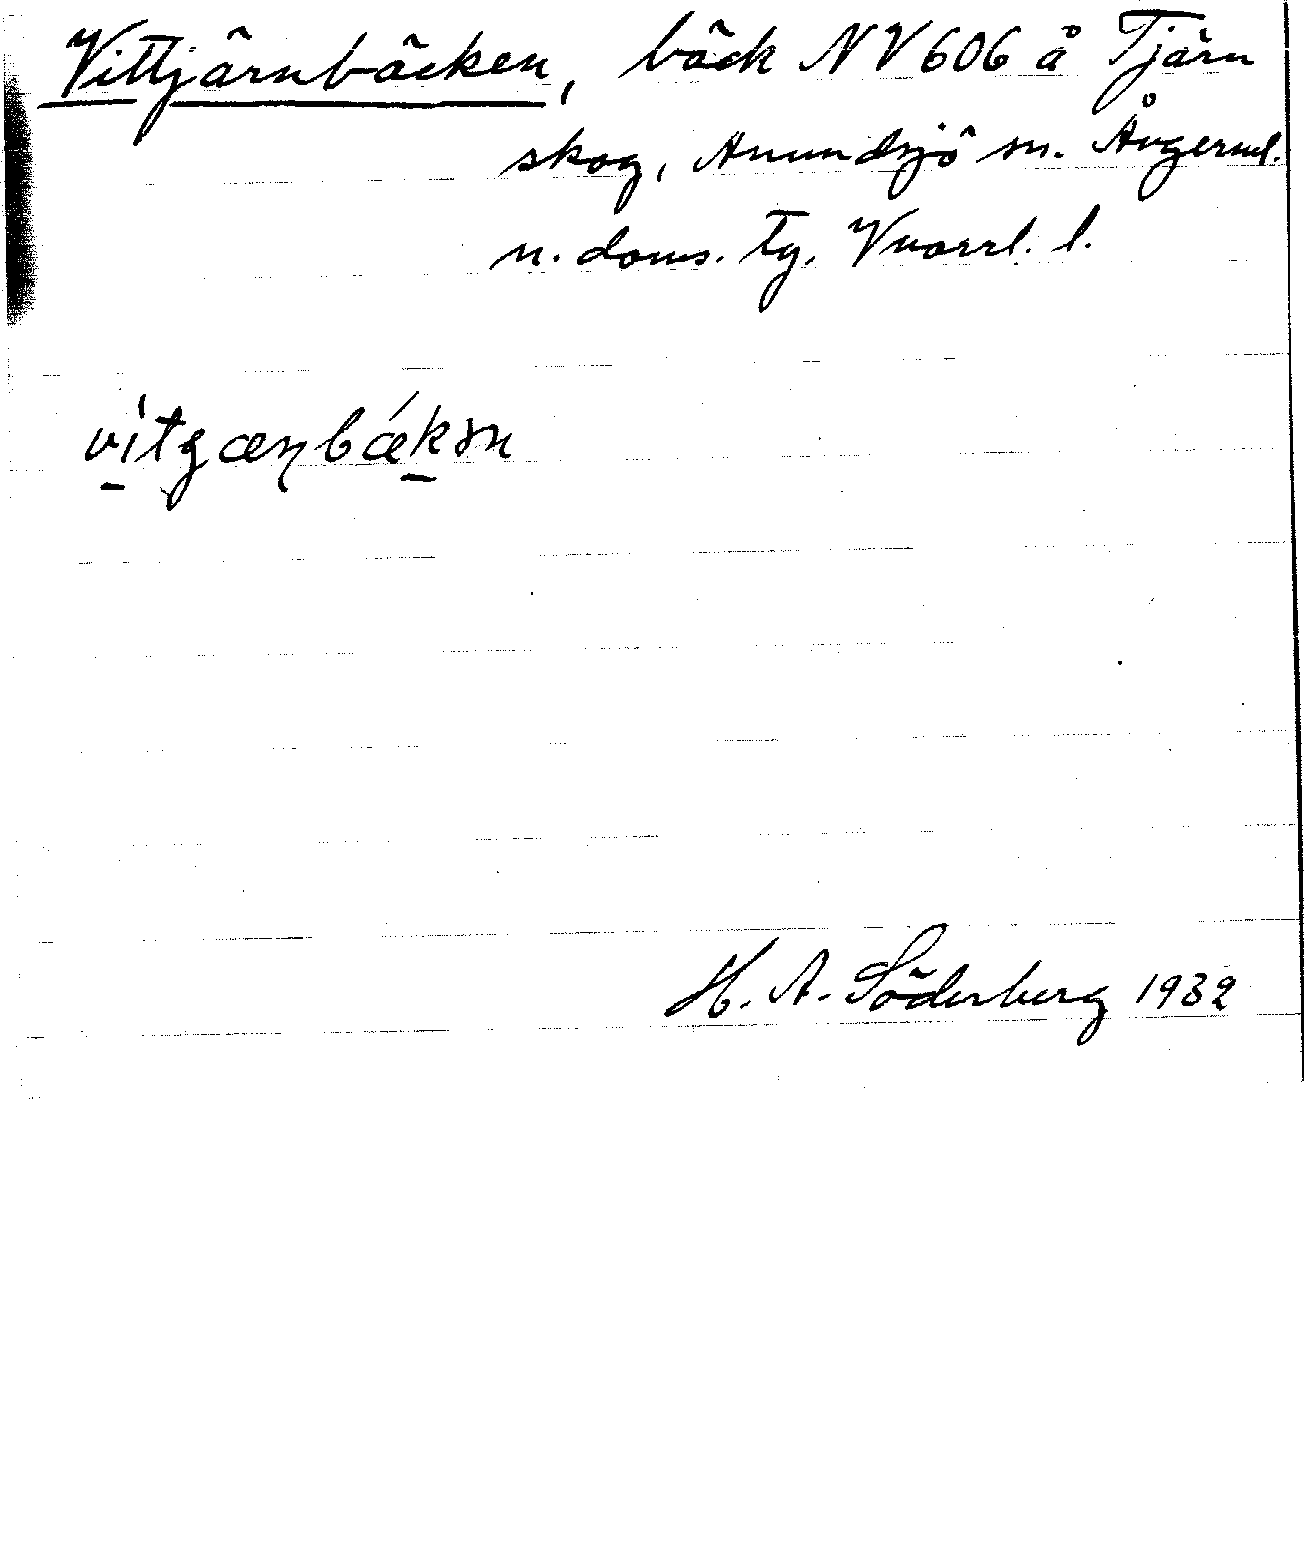 Vittjärnbäcken, bäck NV 606 å Tjärn
skog, Anundsjö sn. Ångerml.
n. doms. tg. Vnorrl. l.
vitgæɳbækən
H. A. Söderberg 1932